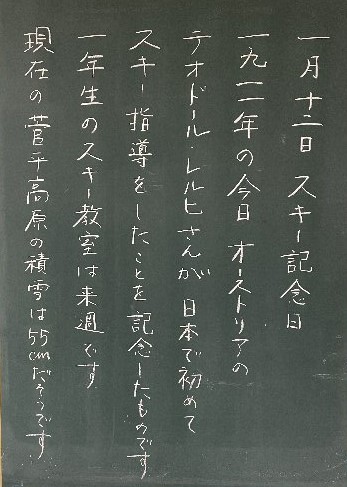 一月十二日 スキー記念日
一九一一年の今日 オーストリアの
テオドール・レルヒさんが 日本で初めて
スキー指導をしたことを記念したものです
一年生のスキー教室は来週です
現在の菅平高原の積雪は55cmだそうです